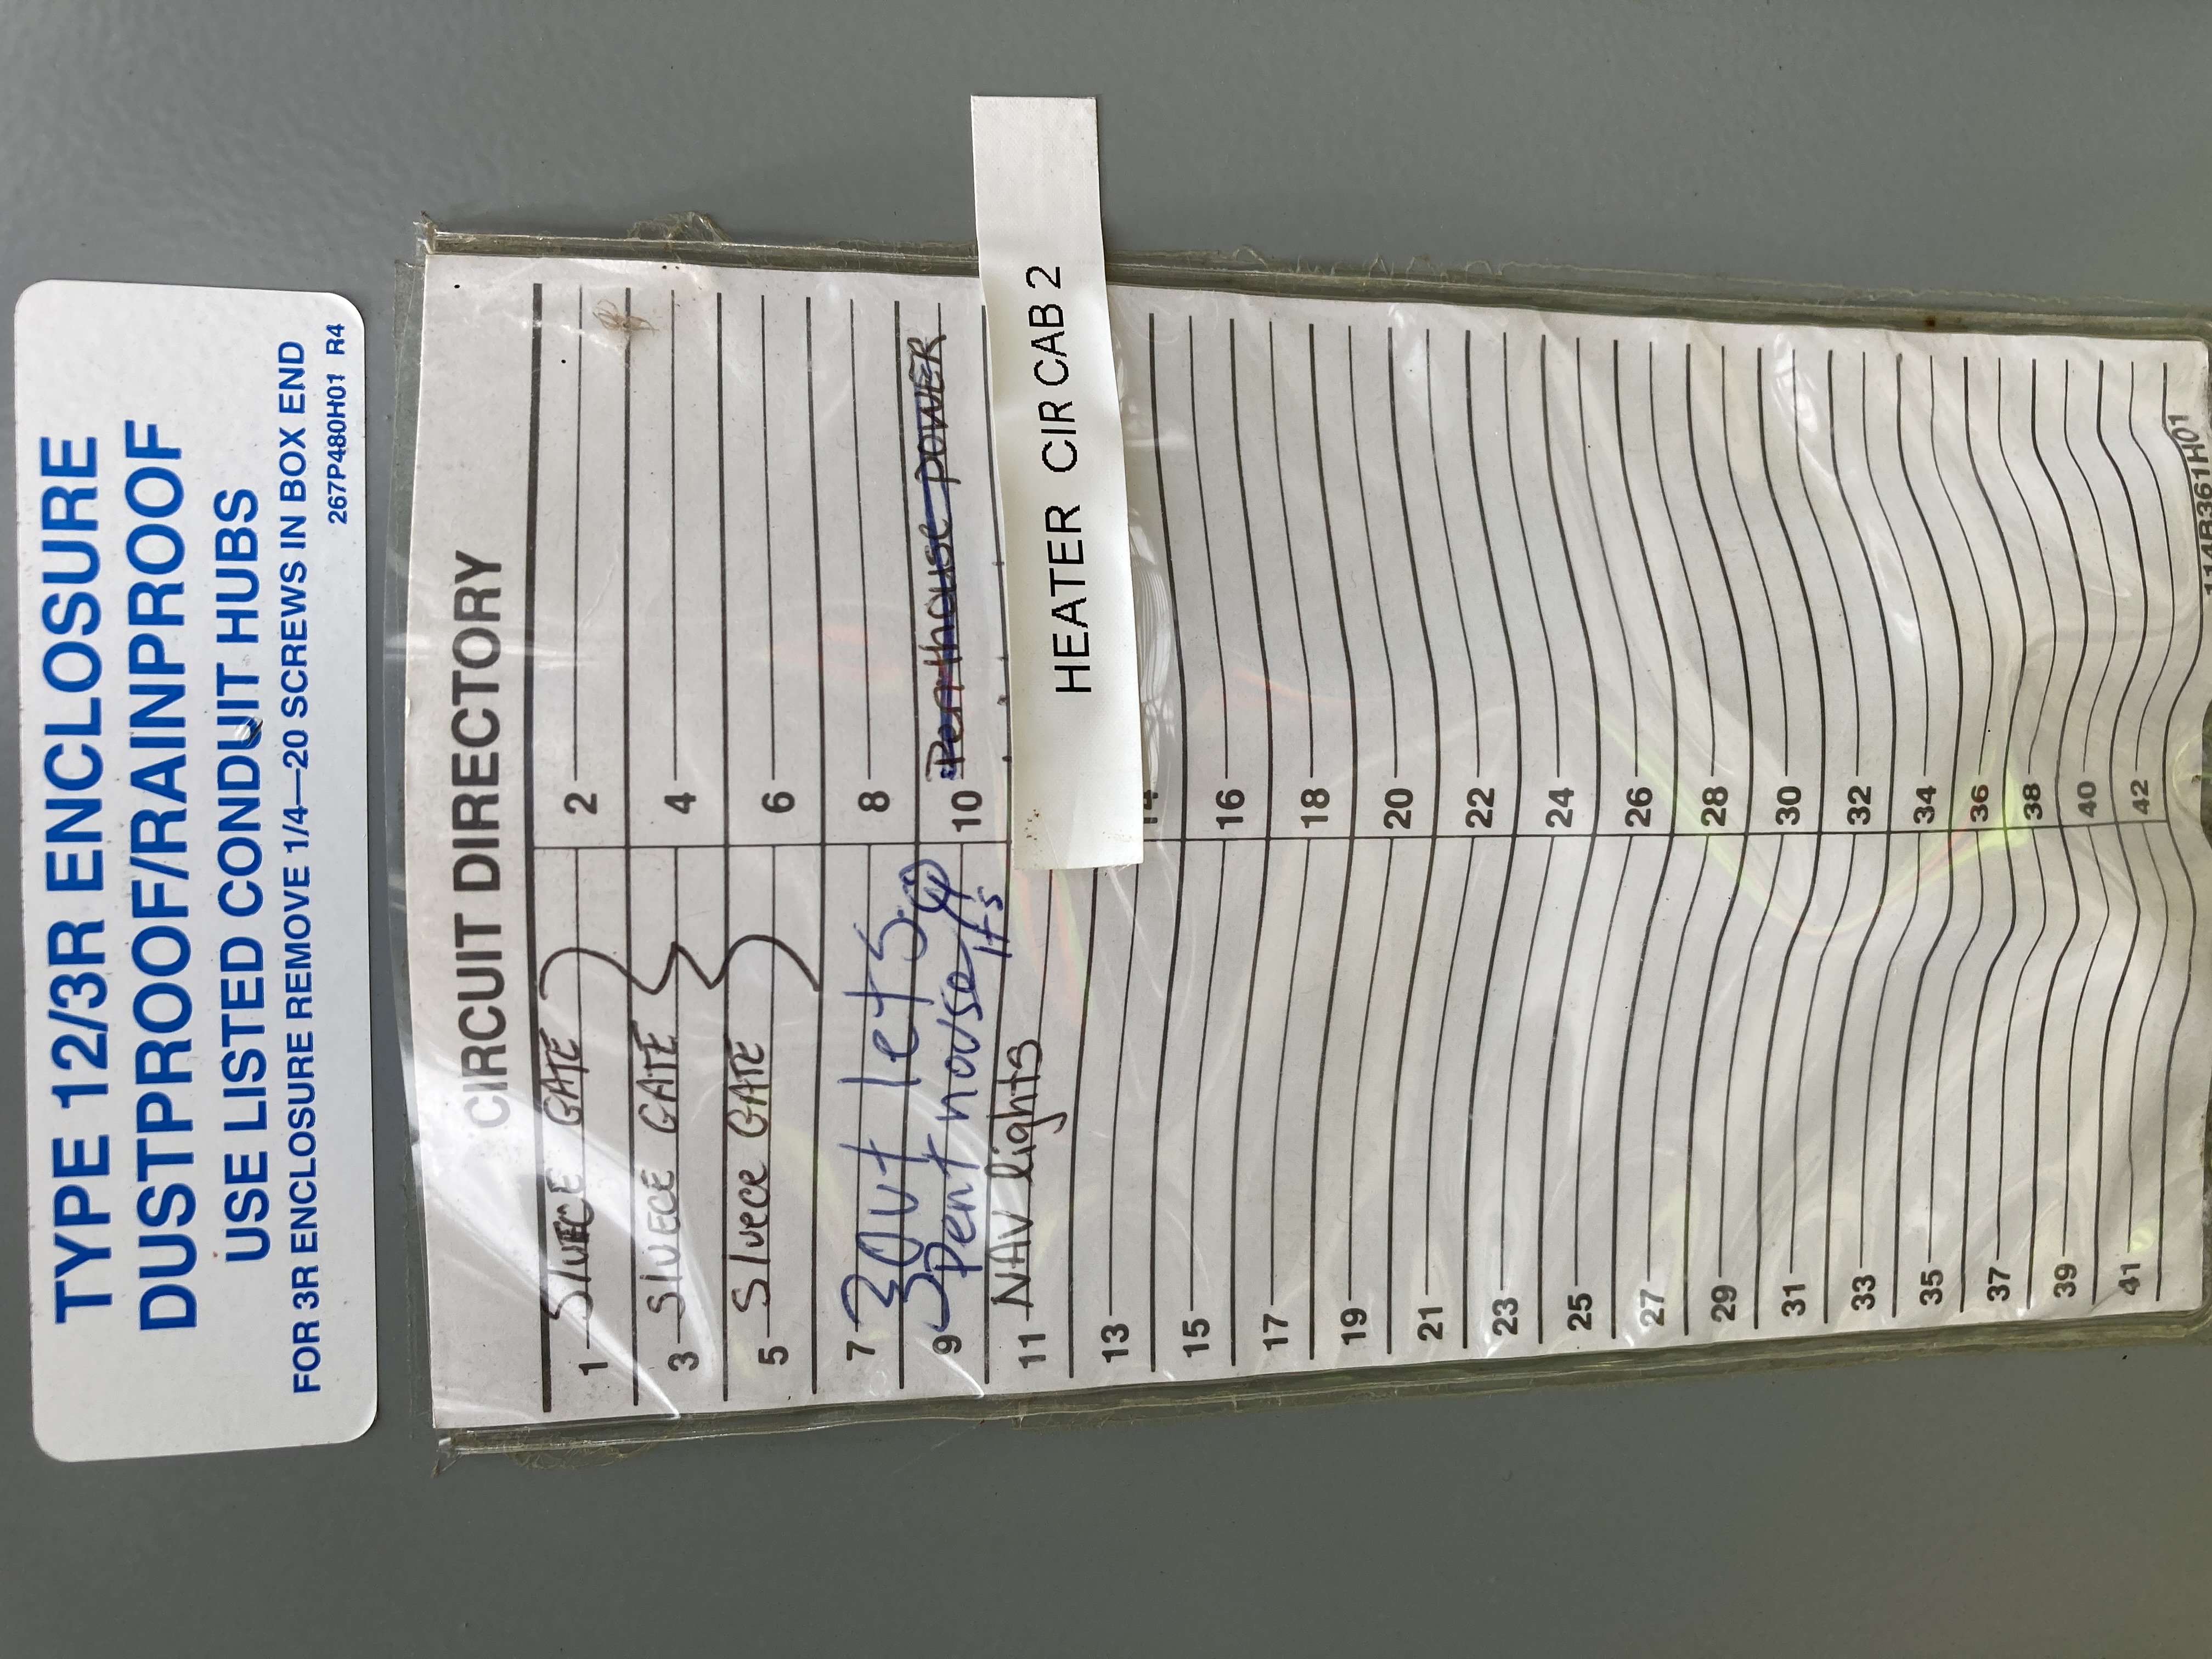 TYPE 12/3R ENCLOSURE
DUSTPROOF/RAINPROOF
USE LISTED CONDUIT HUBS
FOR 3R ENCLOSURE REMOVE 1/4—20 SCREWS IN BOX END
267P480H01 R4
CIRCUIT DIRECTORY
1 SluECE GATE
2
3 SlUECE GATE
4
5 Sluece GATE
6
7 3 Out lets
8
9 Pent house
lts
10 Penthouse POWER
11 NAV lights
HEATER CIR CAB 2
13
14
15
16
17
18
19
20
21
22
23
24
25
26
27
28
29
30
31
32
33
34
35
36
37
38
39
40
41
42
114B361H01